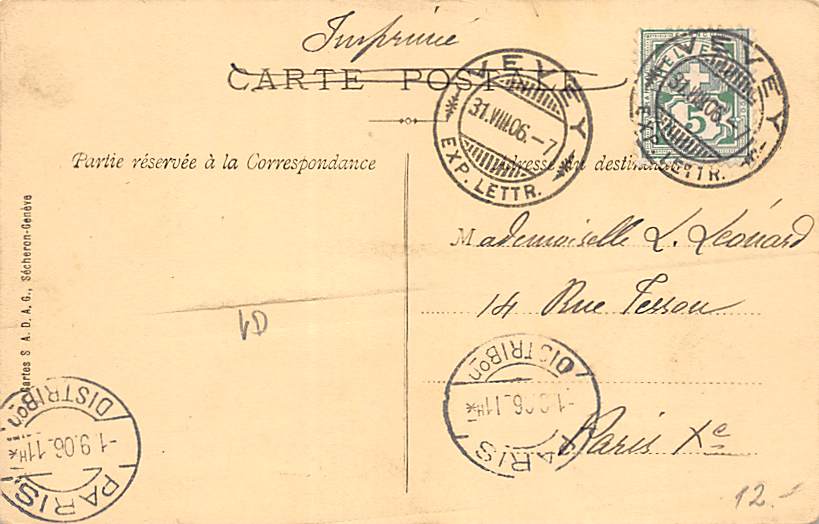 Imprimé
CARTE POSTALE
VEVEY
31.VIII.06.-7
EXP. LETTR.
VEVEY
HELVE
31.VIII.06.-7
5
EXP. LETTR.
Partie réservée à la Correspondance
Adresse du destinataire
Mademoiselle L. Léonard
14 Rue Tesson
Paris Xe
PARIS
DISTRIBon
-1.9.06.11H*
PARIS
DISTRIBon
-1.9.06.11H*
Cartes S A. D. A. G., Sécheron-Genève
12.-